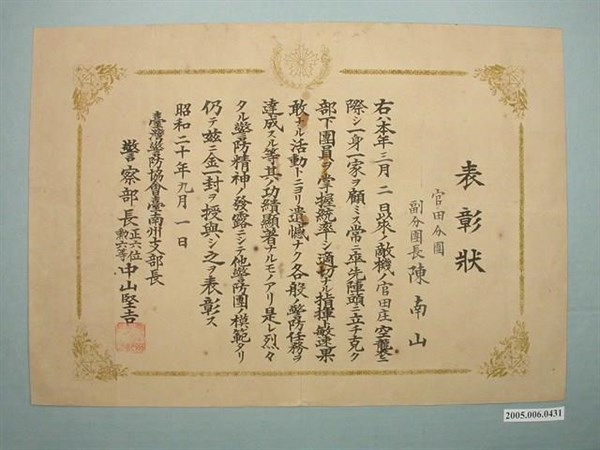 表彰狀
官田分團
副分團長 陳南山
右ハ本年三月二日以來敵機ノ官田庄空襲ニ
際シ一身一家ヲ顧ミス常ニ率先陣頭ニ立チ克ク
部下團員ヲ掌握統率シ適切ナル指揮ト敏速果
敢ナル活動トニヨリ遺憾ナク各般ノ警防任務ヲ
達成スル等其ノ功績顯著ナルモノアリ是レ烈々
タル警防精神ノ發露ニシテ他警防團ノ模範タリ
仍テ玆ニ金一封ヲ授與シ之ヲ表彰ス
昭和二十年九月一日
臺灣警防協會臺南州支部長
警察部長正六位勲六等中山堅吉
2005.006.0431